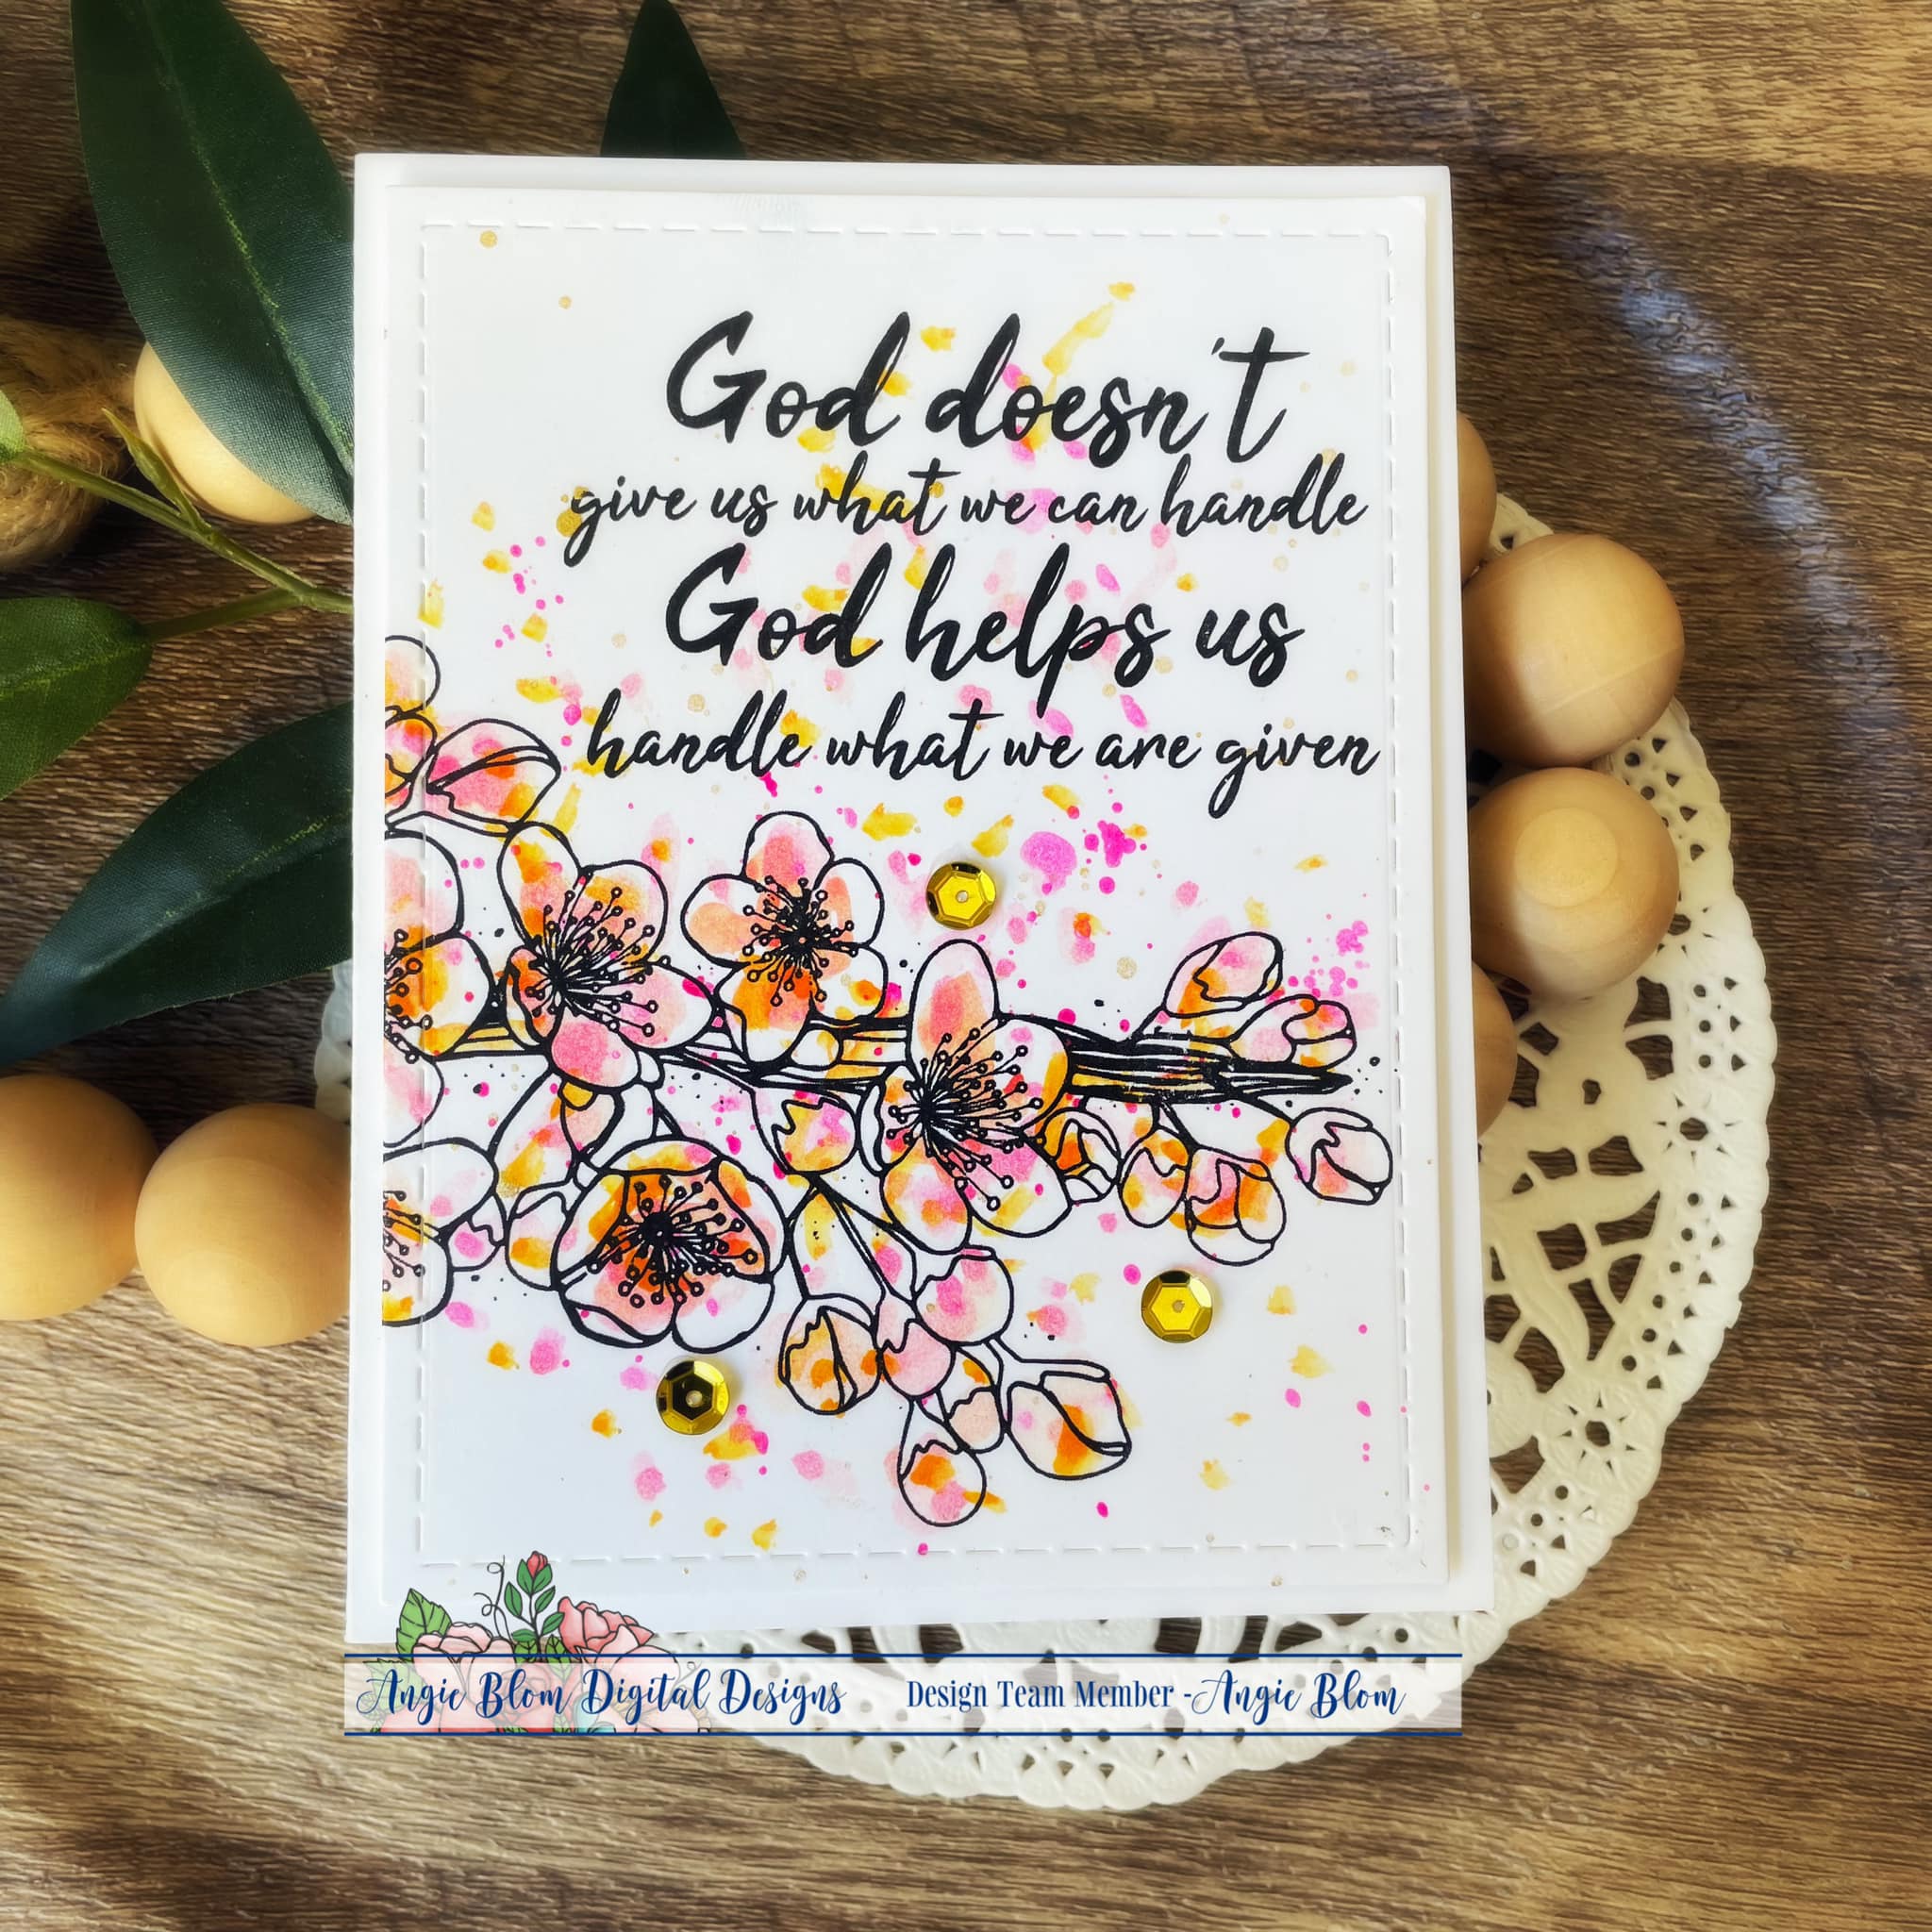 God doesn't
give us what we can handle
God helps us
handle what we are given
Angie Blom Digital Designs Design Team Member -Angie Blom